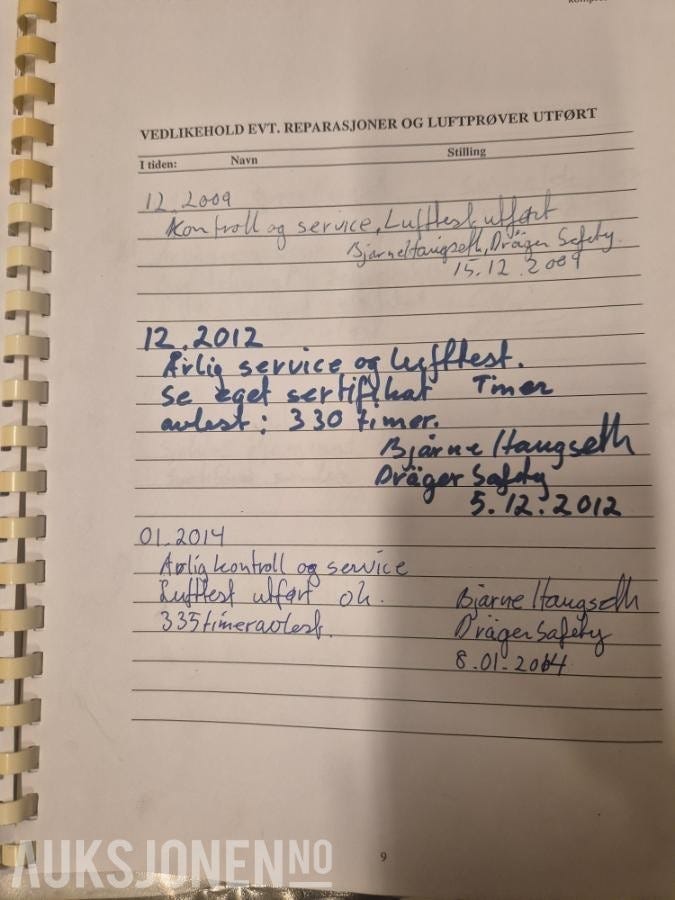 VEDLIKEHOLD EVT. REPARASJONER OG LUFTPRØVER UTFØRT
I tiden: Navn Stilling
12.2009
Kontroll og service, Lufttest utført
Bjarne Haugseth, Dräger Safety.
15.12.2009
12.2012
Årlig service og lufttest.
Se eget sertifikat Timer
avlest: 330 timer.
Bjarne Haugseth
Dräger Safety
5.12.2012
01.2014
Årlig kontroll og service
Lufttest utført ok.
Bjarne Haugseth
335 timer avlest.
Dräger Safety
8.01-2014
9
AUKSJONEN.NO